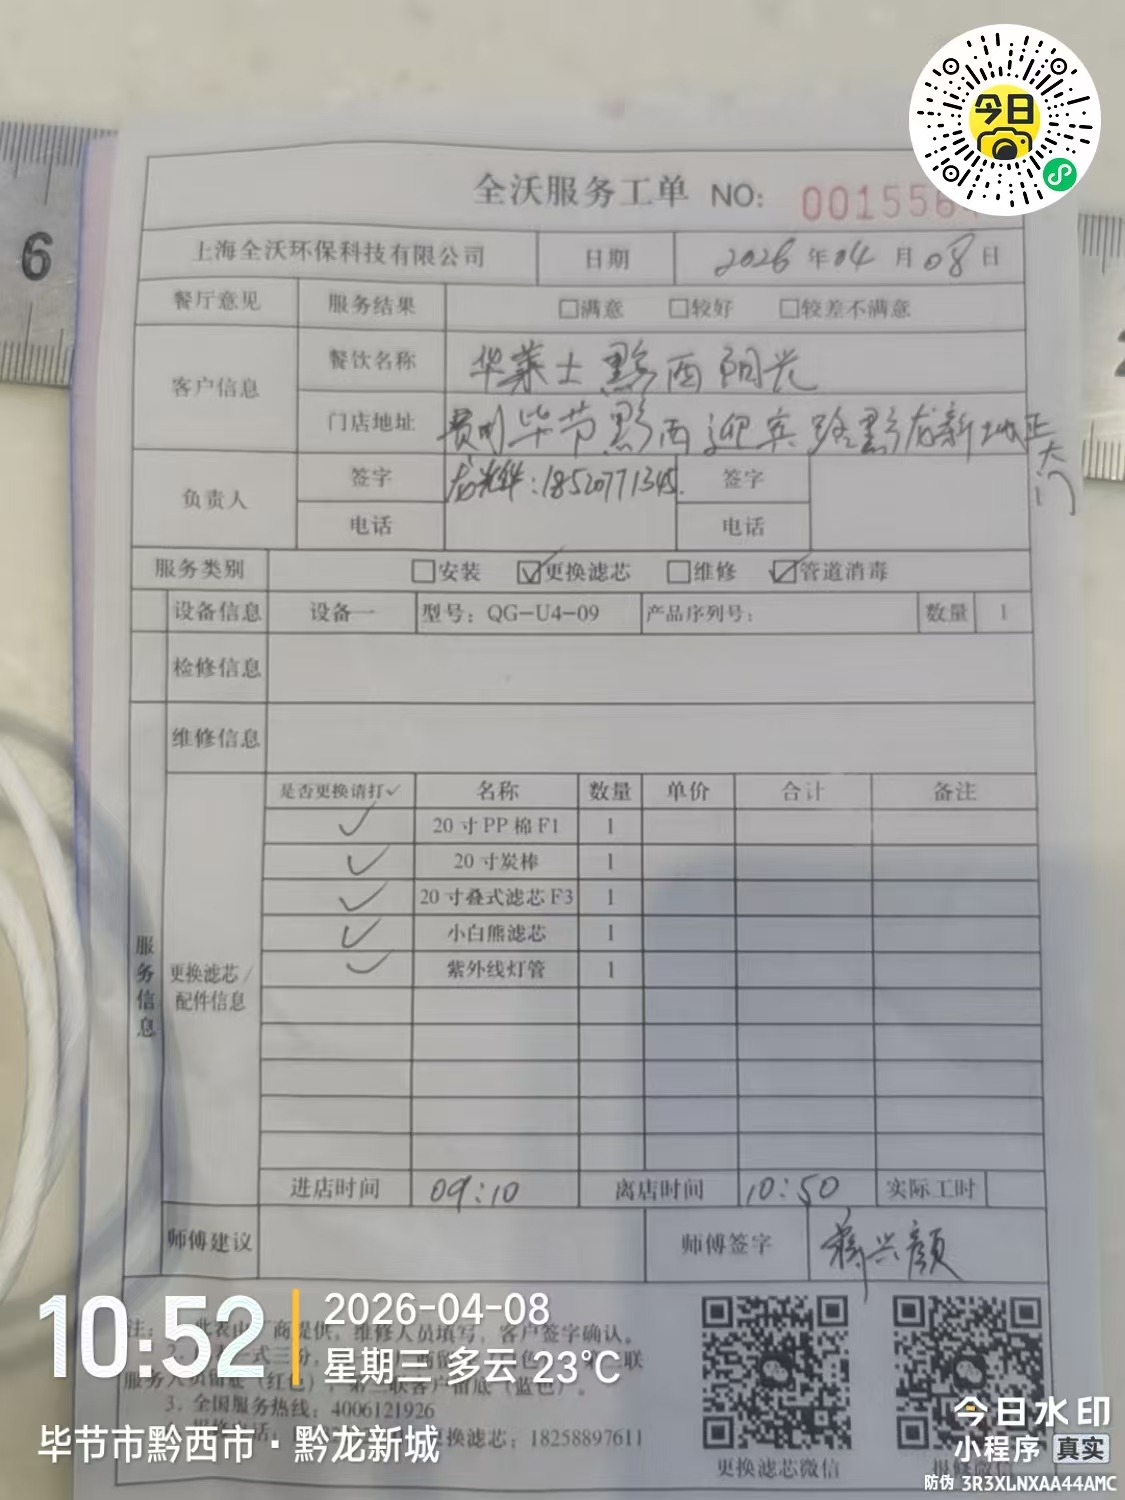 今日
全沃服务工单 NO: 001556
上海全沃环保科技有限公司 日期 2026年04月08日
餐厅意见 服务结果 □满意 □较好 □较差不满意
客户信息 餐饮名称 华莱士黔西阳光
门店地址 贵州毕节黔西迎宾路黔龙新城正大门
负责人 签字 龙光华:18520771345. 签字
电话 电话
服务类别 □安装 ☑更换滤芯 □维修 ☑管道消毒
设备信息 设备一 型号: QG-U4-09 产品序列号: 数量 1
检修信息
维修信息
服务信息
更换滤芯/配件信息
是否更换请打✓ 名称 数量 单价 合计 备注
✓ 20寸PP棉F1 1
✓ 20寸炭棒 1
✓ 20寸叠式滤芯F3 1
✓ 小白熊滤芯 1
✓ 紫外线灯管 1
进店时间 09:10 离店时间 10:50 实际工时
师傅建议 师傅签字
注: 此表由厂商提供,维修人员填写,客户签字确认。
一式三份,
服务人员留底(红色),第三联客户留底(蓝色)。
3、全国服务热线: 4006121926
换滤芯: 18258897611
更换滤芯微信 报修微信
10:52 2026-04-08
星期三 多云 23°C
毕节市黔西市·黔龙新城
今日水印
小程序 真实
防伪 3R3XLNXAA44AMC
6